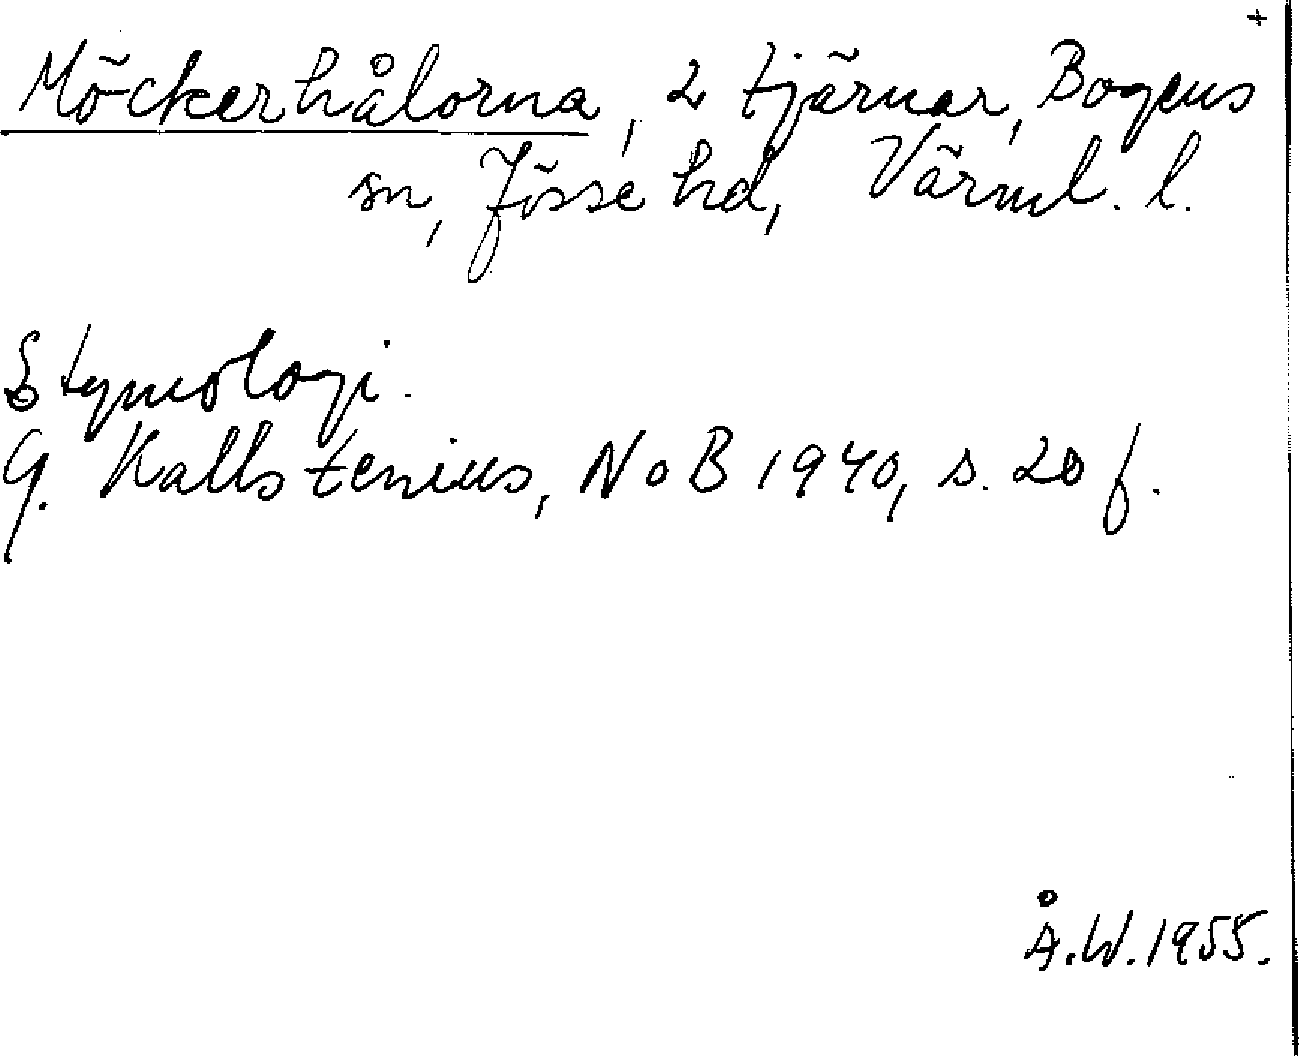 +
Möckerhålorna, 2 tjärnar, Bogens
sn, Jösse hd, Värml. l.
Etymologi.
G. Kallstenius, NoB 1940, s. 20 f.
Å.W.1955.